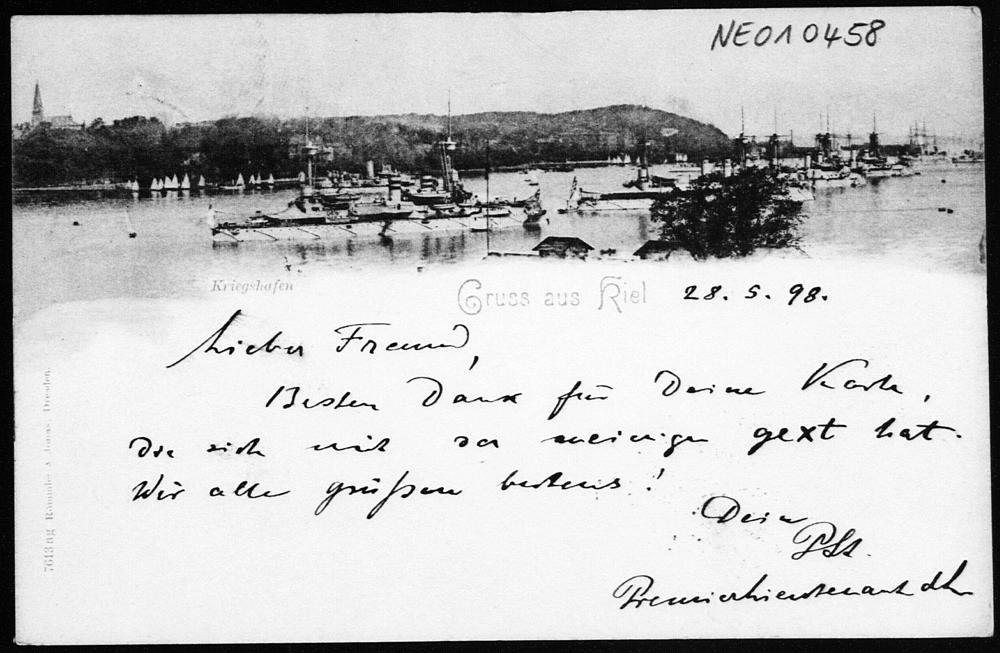 NEO10458
Kriegshafen
Gruss aus Kiel 28. 5. 98.
Lieber Freund,
Besten Dank für Deine Karte,
die sich mit der meinigen gext hat.
Wir alle grüßen bestens!
Dein
PSt.
Premierlieutenant dL
7613 Bg Römmler & Jonas, Dresden.